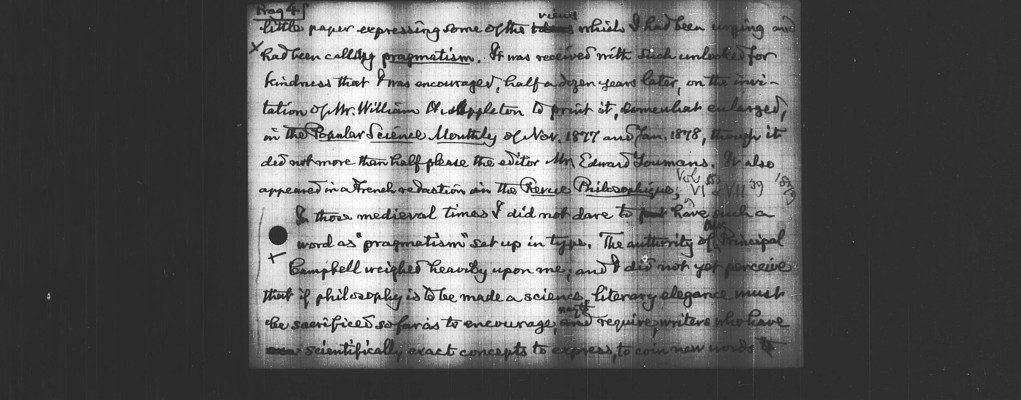 Prag 4
little paper expressing some of the views which I had been urging and
had been calling pragmatism. It was received with such unlooked for
kindness that I was encouraged, half a dozen years later, on the invi-
tation of Mr. William H. Appleton to print it, somewhat enlarged,
in the Popular Science Monthly of Nov. 1877 and Jan. 1878, though it
did not more than half please the editor Mr. Edward Youmans. It also
appeared in a French redaction in the Revue Philosophique, Vols VI & VII 1879
In those medieval times I did not dare to have such a
word as "pragmatism" set up in type. The authority of Principal
Campbell weighed heavily upon me; and I did not yet perceive
that if philosophy is to be made a science, literary elegance must
be sacrificed so far as to encourage, and require, writers who have
scientifically exact concepts to express, to coin new words